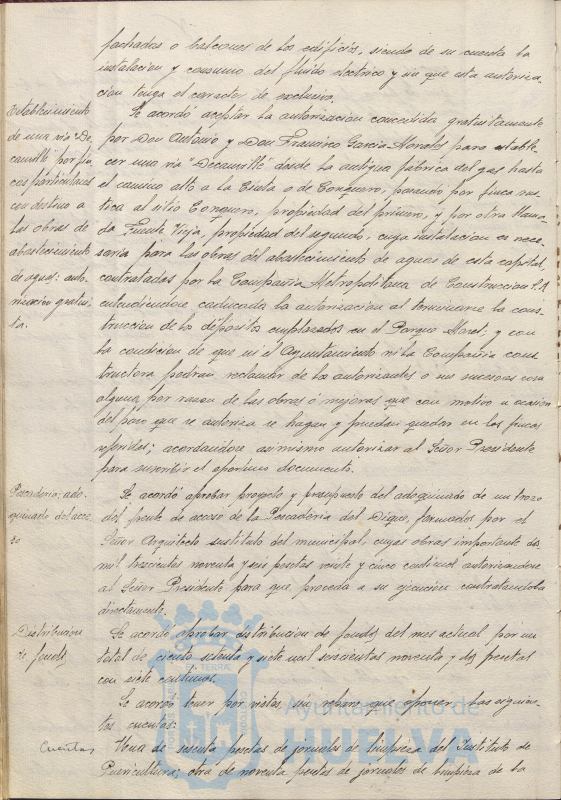 fachadas o balcones de los edificios, siendo de su cuenta la
instalacion y consumo del fluido electrico y sin que esta autoriza-
cion tenga el caracter de exclusiva.
Establecimiento
de una via "De-
cauville" por fin-
cas particulares
con destino a
las obras de
abastecimiento
de aguas: auto-
rización gratui-
ta.
Se acordó aceptar la autorizacion concedida gratuitamente
por Don Antonio y Don Francisco Garcia Morales para estable-
cer una via "Decauville" desde la antigua fábrica del gas hasta
el camino alto a la Cinta o de Conquero, pasando por finca rus-
tica al sitio Conquero, propiedad del primero, y por otra llama-
da Fuente Vieja, propiedad del segundo, cuya instalacion es nece-
saria para las obras del abastecimiento de aguas de esta capital,
contratadas por la Compañia Metropolitana de Construccion S.A.
entendiendose caducada la autorizacion al terminarse la cons-
truccion de los depositos emplazados en el Parque Moret; y con
la condicion de que ni el Ayuntamiento ni la Compañia cons-
tructora podran reclamar de los autorizantes o sus sucesores cosa
alguna por razon de las obras ó mejoras que con motivo u ocasion
del paso que se autoriza se hagan y puedan quedar en las fincas
referidas; acordandose asimismo autorizar al Señor Presidente
para suscribir el oportuno documento.
Pescaderia: ado-
quinado del acce-
so
Se acordó aprobar proyecto y presupuesto del adoquinado de un trozo
del frente de acceso de la Pescaderia del Dique, formados por el
Señor Arquitecto sustituto del municipal, cuyas obras importante dos
mil trescientas noventa y seis pesetas veinte y cinco centimos autorizandose
al Señor Presidente para que proceda a su ejecucion contratandola
directamente.
Distribucion
de fondos
Se acordó aprobar distribucion de fondos del mes actual por un
total de ciento setenta y siete mil seiscientas noventa y dos pesetas
con siete centimos.
Se acordó tener por vistas sin reparo que oponer las siguien-
tes cuentas:
Cuentas
Una de sesenta pesetas de jornales de limpieza del Instituto de
Puericultura; otra de noventa pesetas de jornales de limpieza de la
Ayuntamiento de
HUELVA